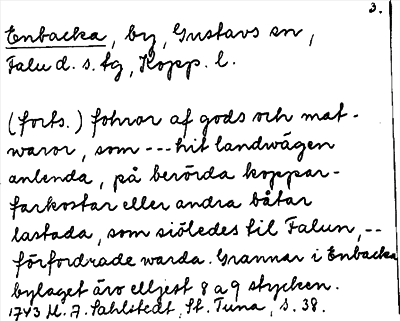 3.
Enbacka, by, Gustavs sn,
Falu d. s. fg, Kopp. l.
(forts.) fohror af gods och mat-
waror, som --- hit landwägen
anlenda, på berörda koppar-
farkostar eller andra båtar
lastada, som siöledes til Falun, --
förfordrade warda. Grannar i Enbacka
bylaget äro elljest 8 a 9 stycken.
1743 M. A. Sahlstedt, St. Tuna, s. 38.